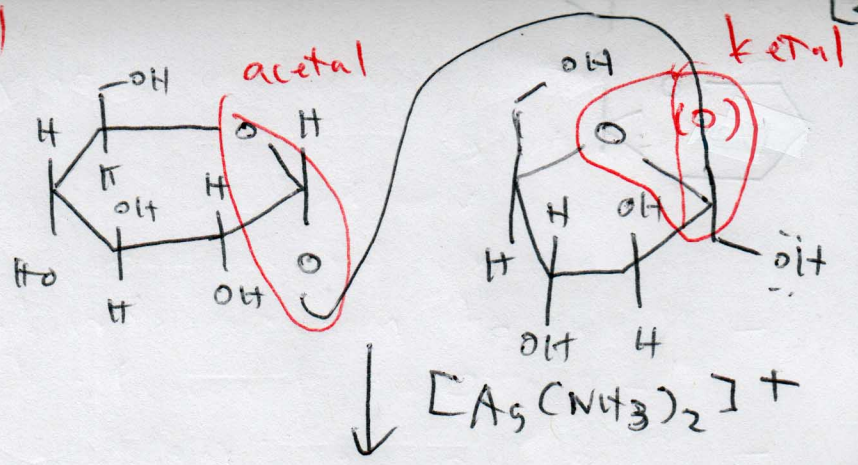 acetal
ketal
OH
OH
H
O
H
(O)
O
H
H
OH
H
OH
HO
O
H
OH
H
OH
OH
H
[Ag(NH3)2]+